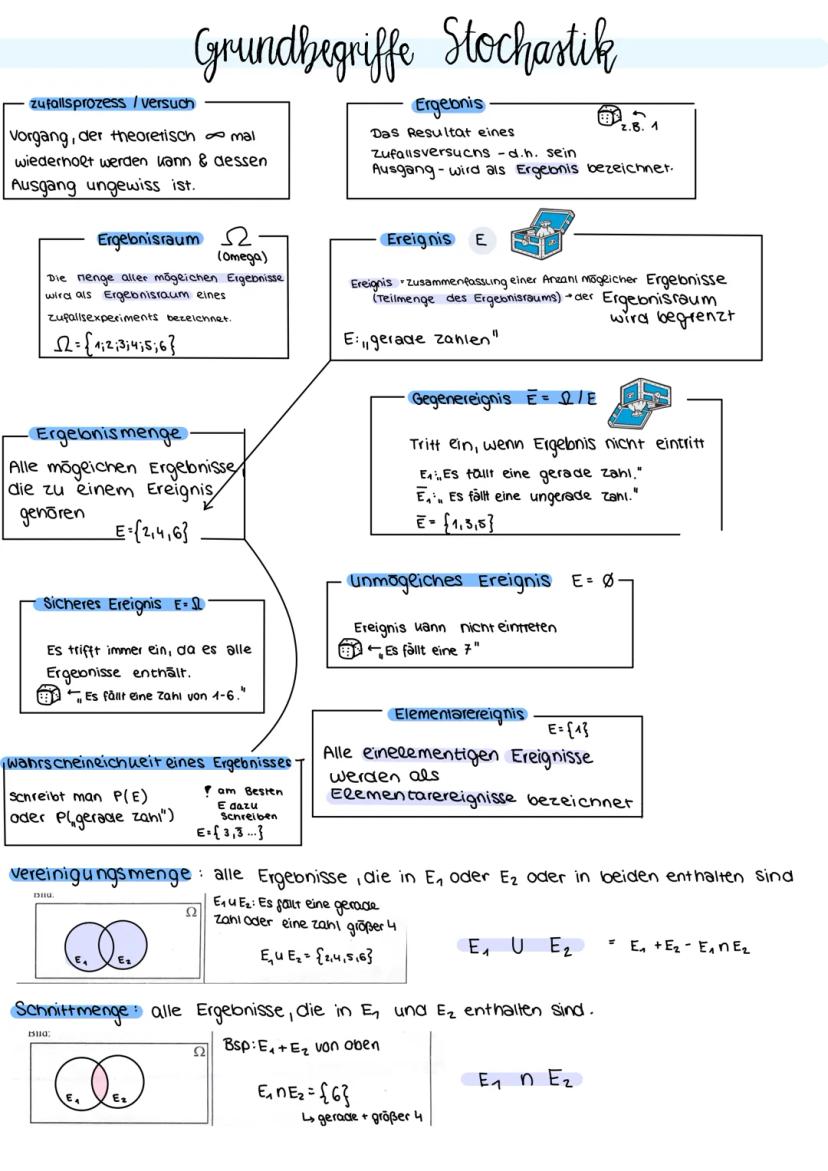 Grundbegriffe Stochastik
zufallsprozess / versuch
Vorgang, der theoretisch ∞ mal
wiederholt werden kann & dessen
Ausgang ungewiss ist.
Ergebnis
z.B. 1
Das Resultat eines
zufallsversuchs - d.h. sein
Ausgang - wird als Ergebnis bezeichnet.
Ergebnisraum Ω
(Omega)
Die menge aller möglichen Ergebnisse
wird als Ergebnisraum eines
zufallsexperiments bezeichnet.
Ω = {1;2;3;4;5;6}
Ereignis E
Ereignis = zusammenfassung einer Anzahl möglicher Ergebnisse
(Teilmenge des Ergebnisraums) → der Ergebnisraum
wird begrenzt
E: „gerade zahlen"
Gegenereignis E̅ = Ω / E
Tritt ein, wenn Ergebnis nicht eintritt
E₁: „Es fällt eine gerade zahl."
E̅₁: „ Es fällt eine ungerade zahl."
E̅ = {1,3,5}
Ergebnismenge
Alle möglichen Ergebnisse,
die zu einem Ereignis
gehören
E={2,4,6}
Sicheres Ereignis E=Ω
Es trifft immer ein, da es alle
Ergebnisse enthält.
← „ Es fällt eine zahl von 1-6."
unmögliches Ereignis E = Ø
Ereignis kann nicht eintreten
← „Es fällt eine 7"
Elementarereignis
E={1}
Alle einelementigen Ereignisse
werden als
Elementarereignisse bezeichnet
wahrscheinlichkeit eines Ergebnisses
schreibt man P(E)
oder P(„gerade zahl")
! am Besten
E dazu
Schreiben
E={3,3̅...}
vereinigungsmenge : alle Ergebnisse, die in E₁ oder E₂ oder in beiden enthalten sind
Bild:
Ω
E₁ E₂
E₁ ∪ E₂: Es fällt eine gerade
zahl oder eine zahl größer 4
E₁ ∪ E₂ = {2,4,5,6}
E₁ ∪ E₂ = E₁ + E₂ - E₁ ∩ E₂
Schnittmenge : alle Ergebnisse, die in E₁ und E₂ enthalten sind.
Bild:
Ω
E₁ E₂
Bsp: E₁ + E₂ von oben
E₁ ∩ E₂ = {6}
↳ gerade + größer 4
E₁ ∩ E₂